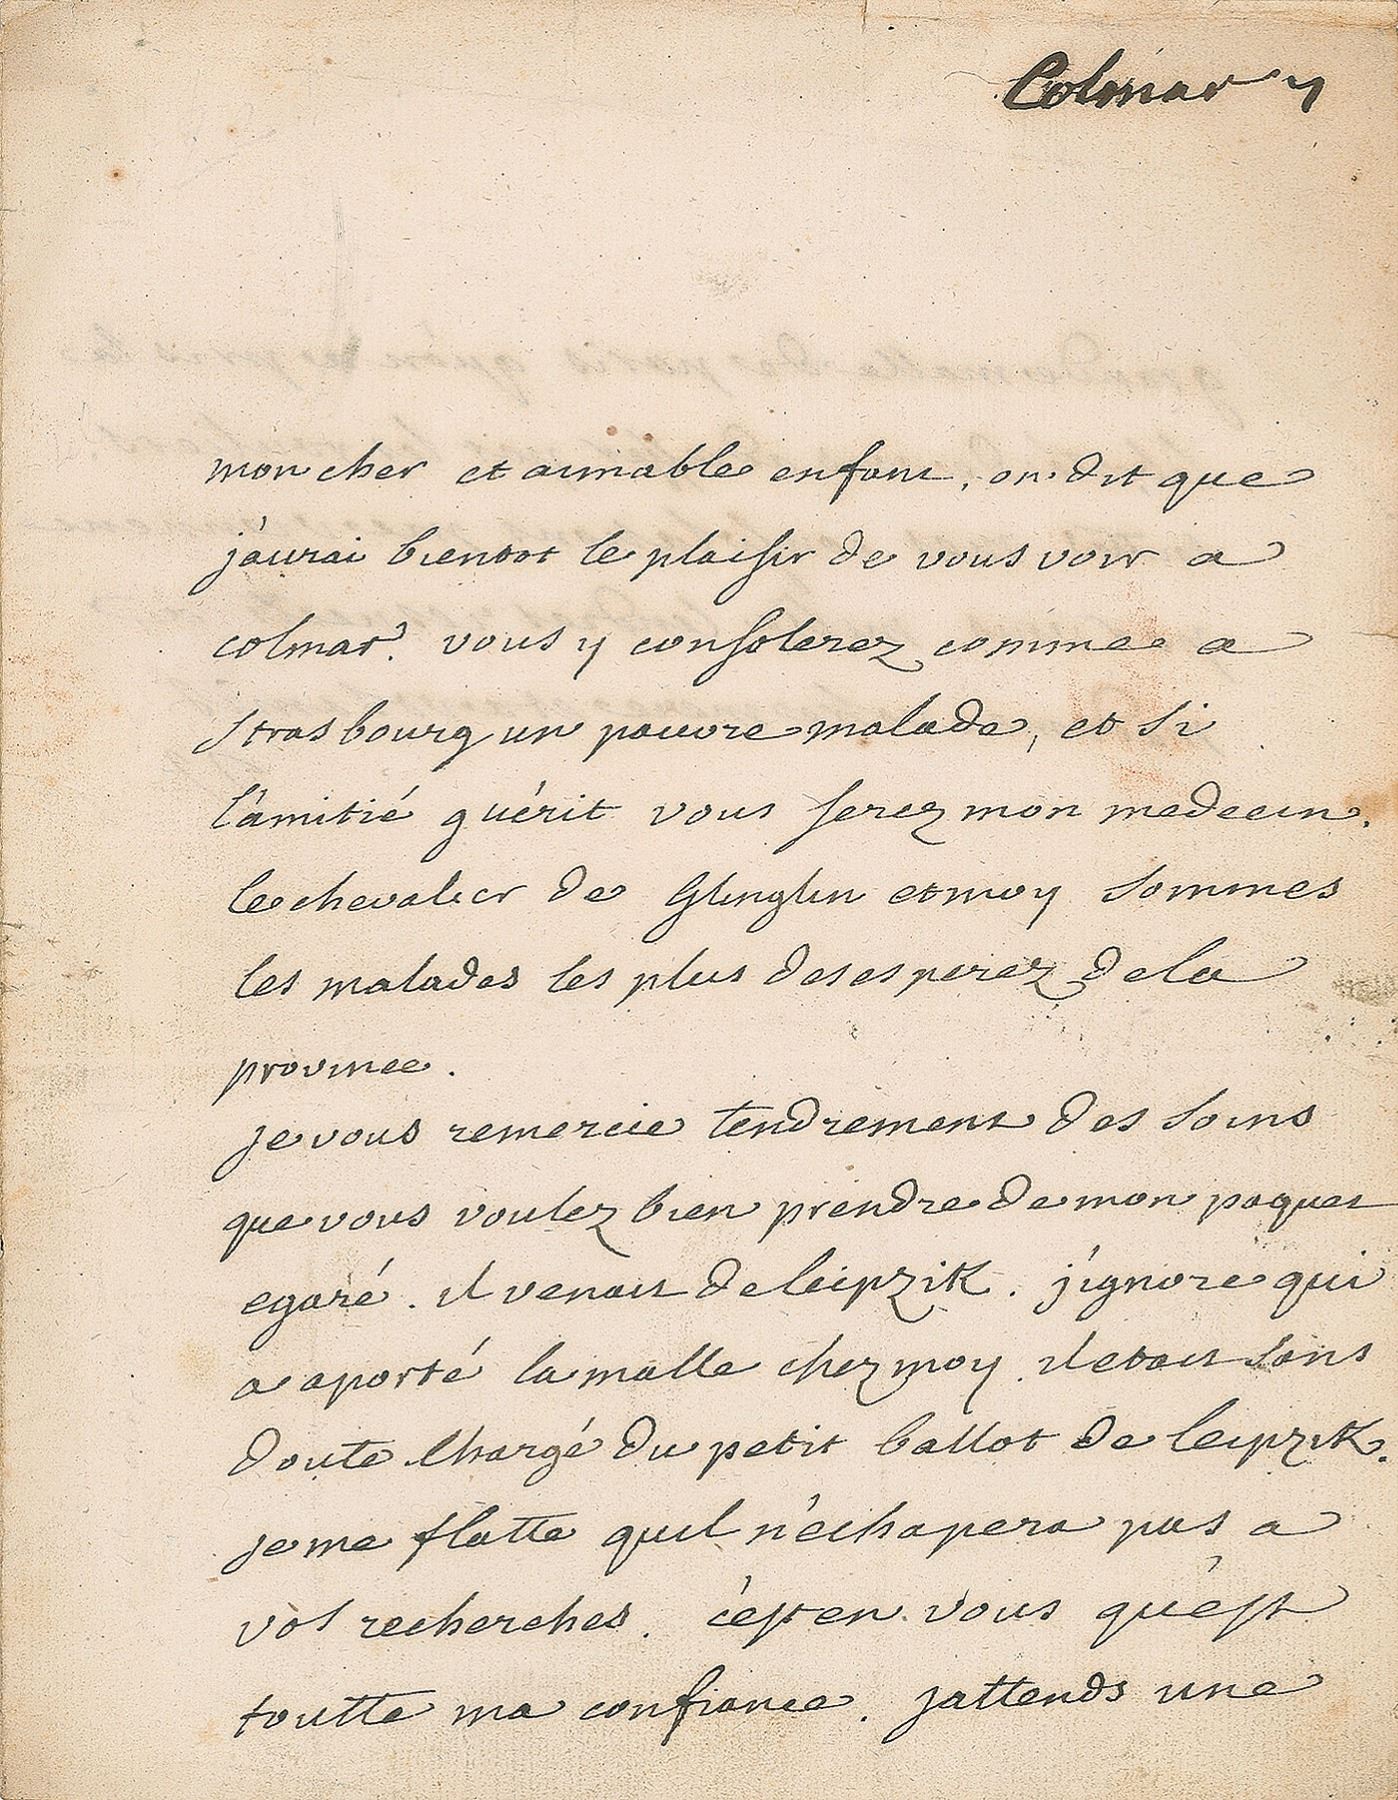 Colmar
mon cher et aimable enfant, on dit que
j'aurai bientot le plaisir de vous voir a
colmar. vous y consolerez comme a
strasbourg un pauvre malade, et si
l'amitié guérit vous serez mon medecin.
le chevalier de Glinglin et moy sommes
les malades les plus desesperez de la
province.
je vous remercie tendrement des soins
que vous voulez bien prendre de mon paquet
egaré. il venait de leipzik. j'ignore qui
a aporté la malle chez moy. il etait sans
doute chargé du petit ballot de leipzik.
je me flatte quil n'échapera pas a
vos recherches. c'est en vous qu'est
toutte ma confiance. jattends une